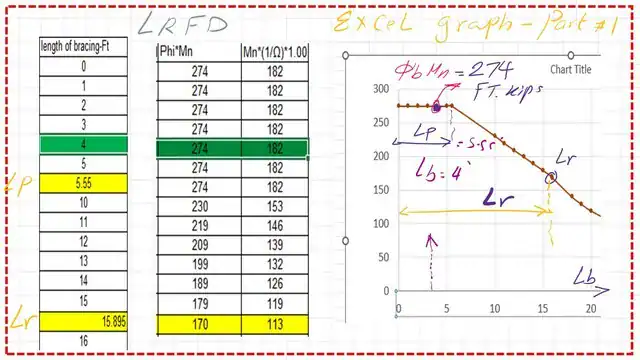 LRFD
EXCEL graph - Part #1
length of bracing-Ft
0
1
2
3
4
5
5.55
10
11
12
13
14
15
15.895
16
Lp
Lr
Phi*Mn Mn*(1/Ω)*1.00
274 182
274 182
274 182
274 182
274 182
274 182
274 182
230 153
219 146
209 139
199 132
189 126
179 119
170 113
Chart Title
ΦbMn = 274
FT. kips
300
250
200
150
100
50
0
Lp = 5.55'
Lb = 4'
Lr
Lr
Lb
0 5 10 15 20